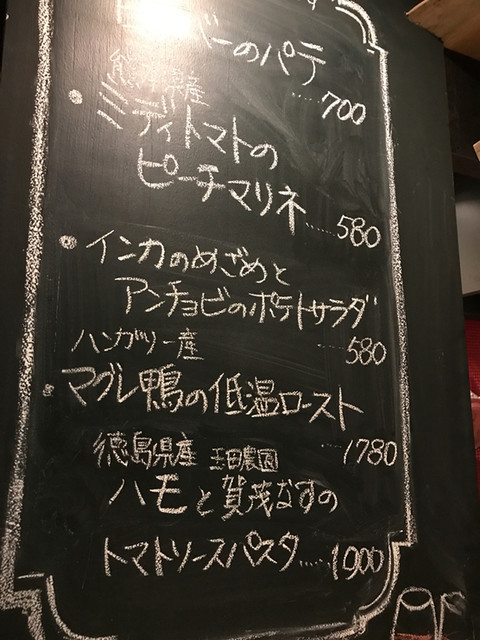 バーのパテ
700
熊本県産
・ミディトマトの
ピーチマリネ……580
・インカのめざめと
アンチョビのポテトサラダ
…580
ハンガリー産
・マグレ鴨の低温ロースト
…1780
徳島県産 玉田農園
ハモと賀茂なすの
トマトソースパスタ……1900